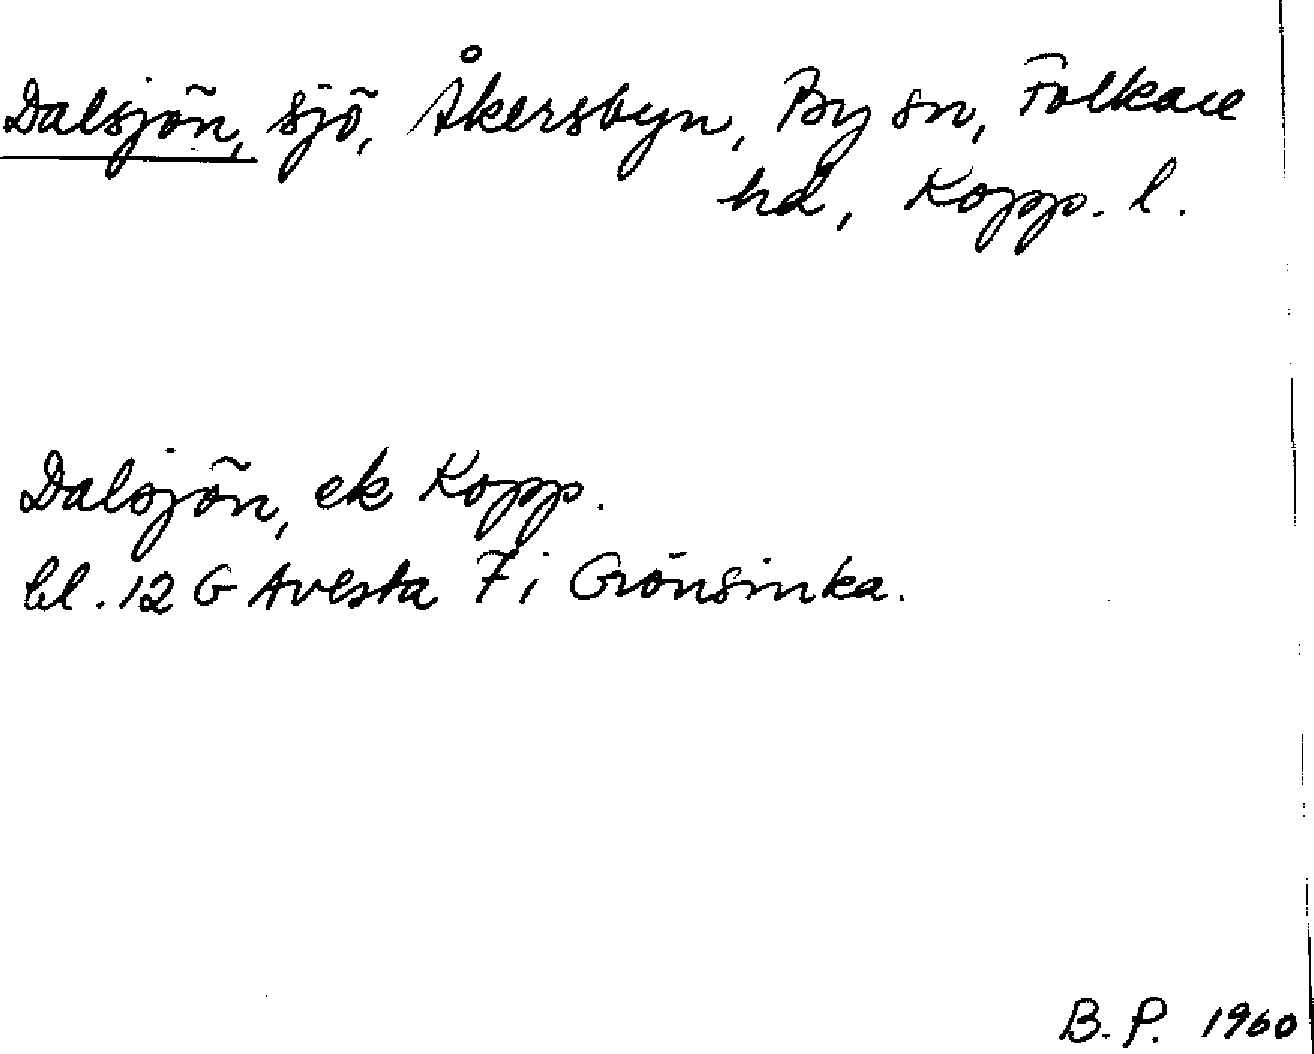 Dalsjön, sjö, Åkersbyn, By sn, Folkare
hd, Kopp. l.
Dalsjön, ek Kopp.
bl. 12 G Avesta 7 i Grönsinka.
B. P. 1960